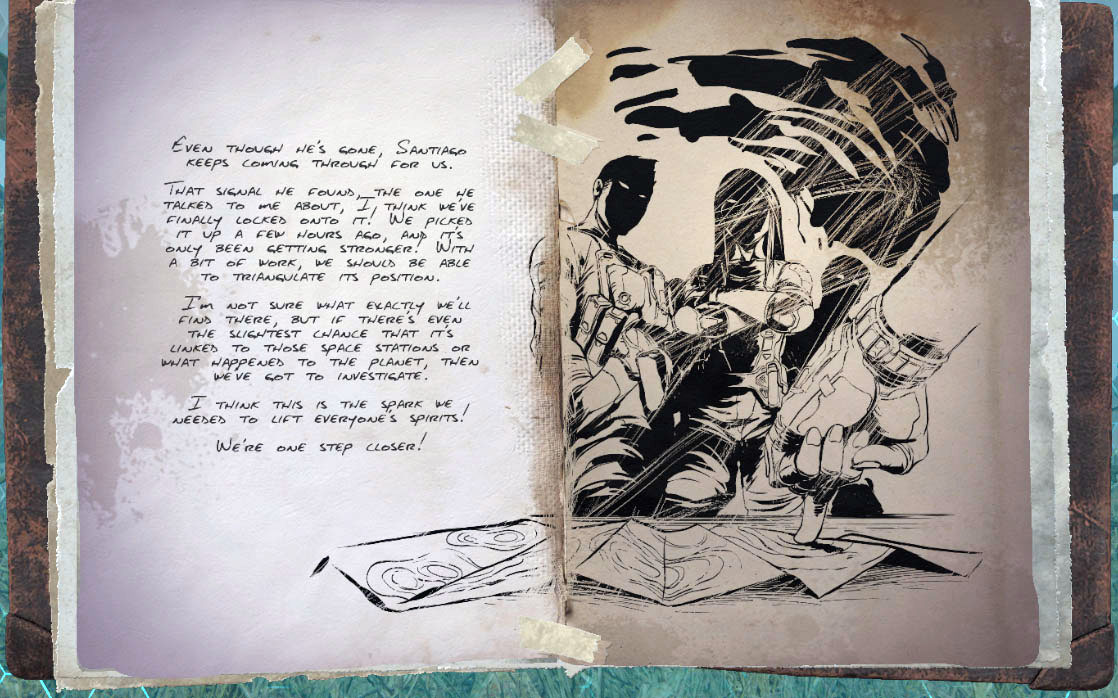 Even though he's gone, Santiago
keeps coming through for us.
That signal he found, the one he
talked to me about, I think we've
finally locked onto it! We picked
it up a few hours ago, and it's
only been getting stronger! With
a bit of work, we should be able
to triangulate its position.
I'm not sure what exactly we'll
find there, but if there's even
the slightest chance that it's
linked to those space stations or
what happened to the planet, then
we've got to investigate.
I think this is the spark we
needed to lift everyone's spirits!
We're one step closer!